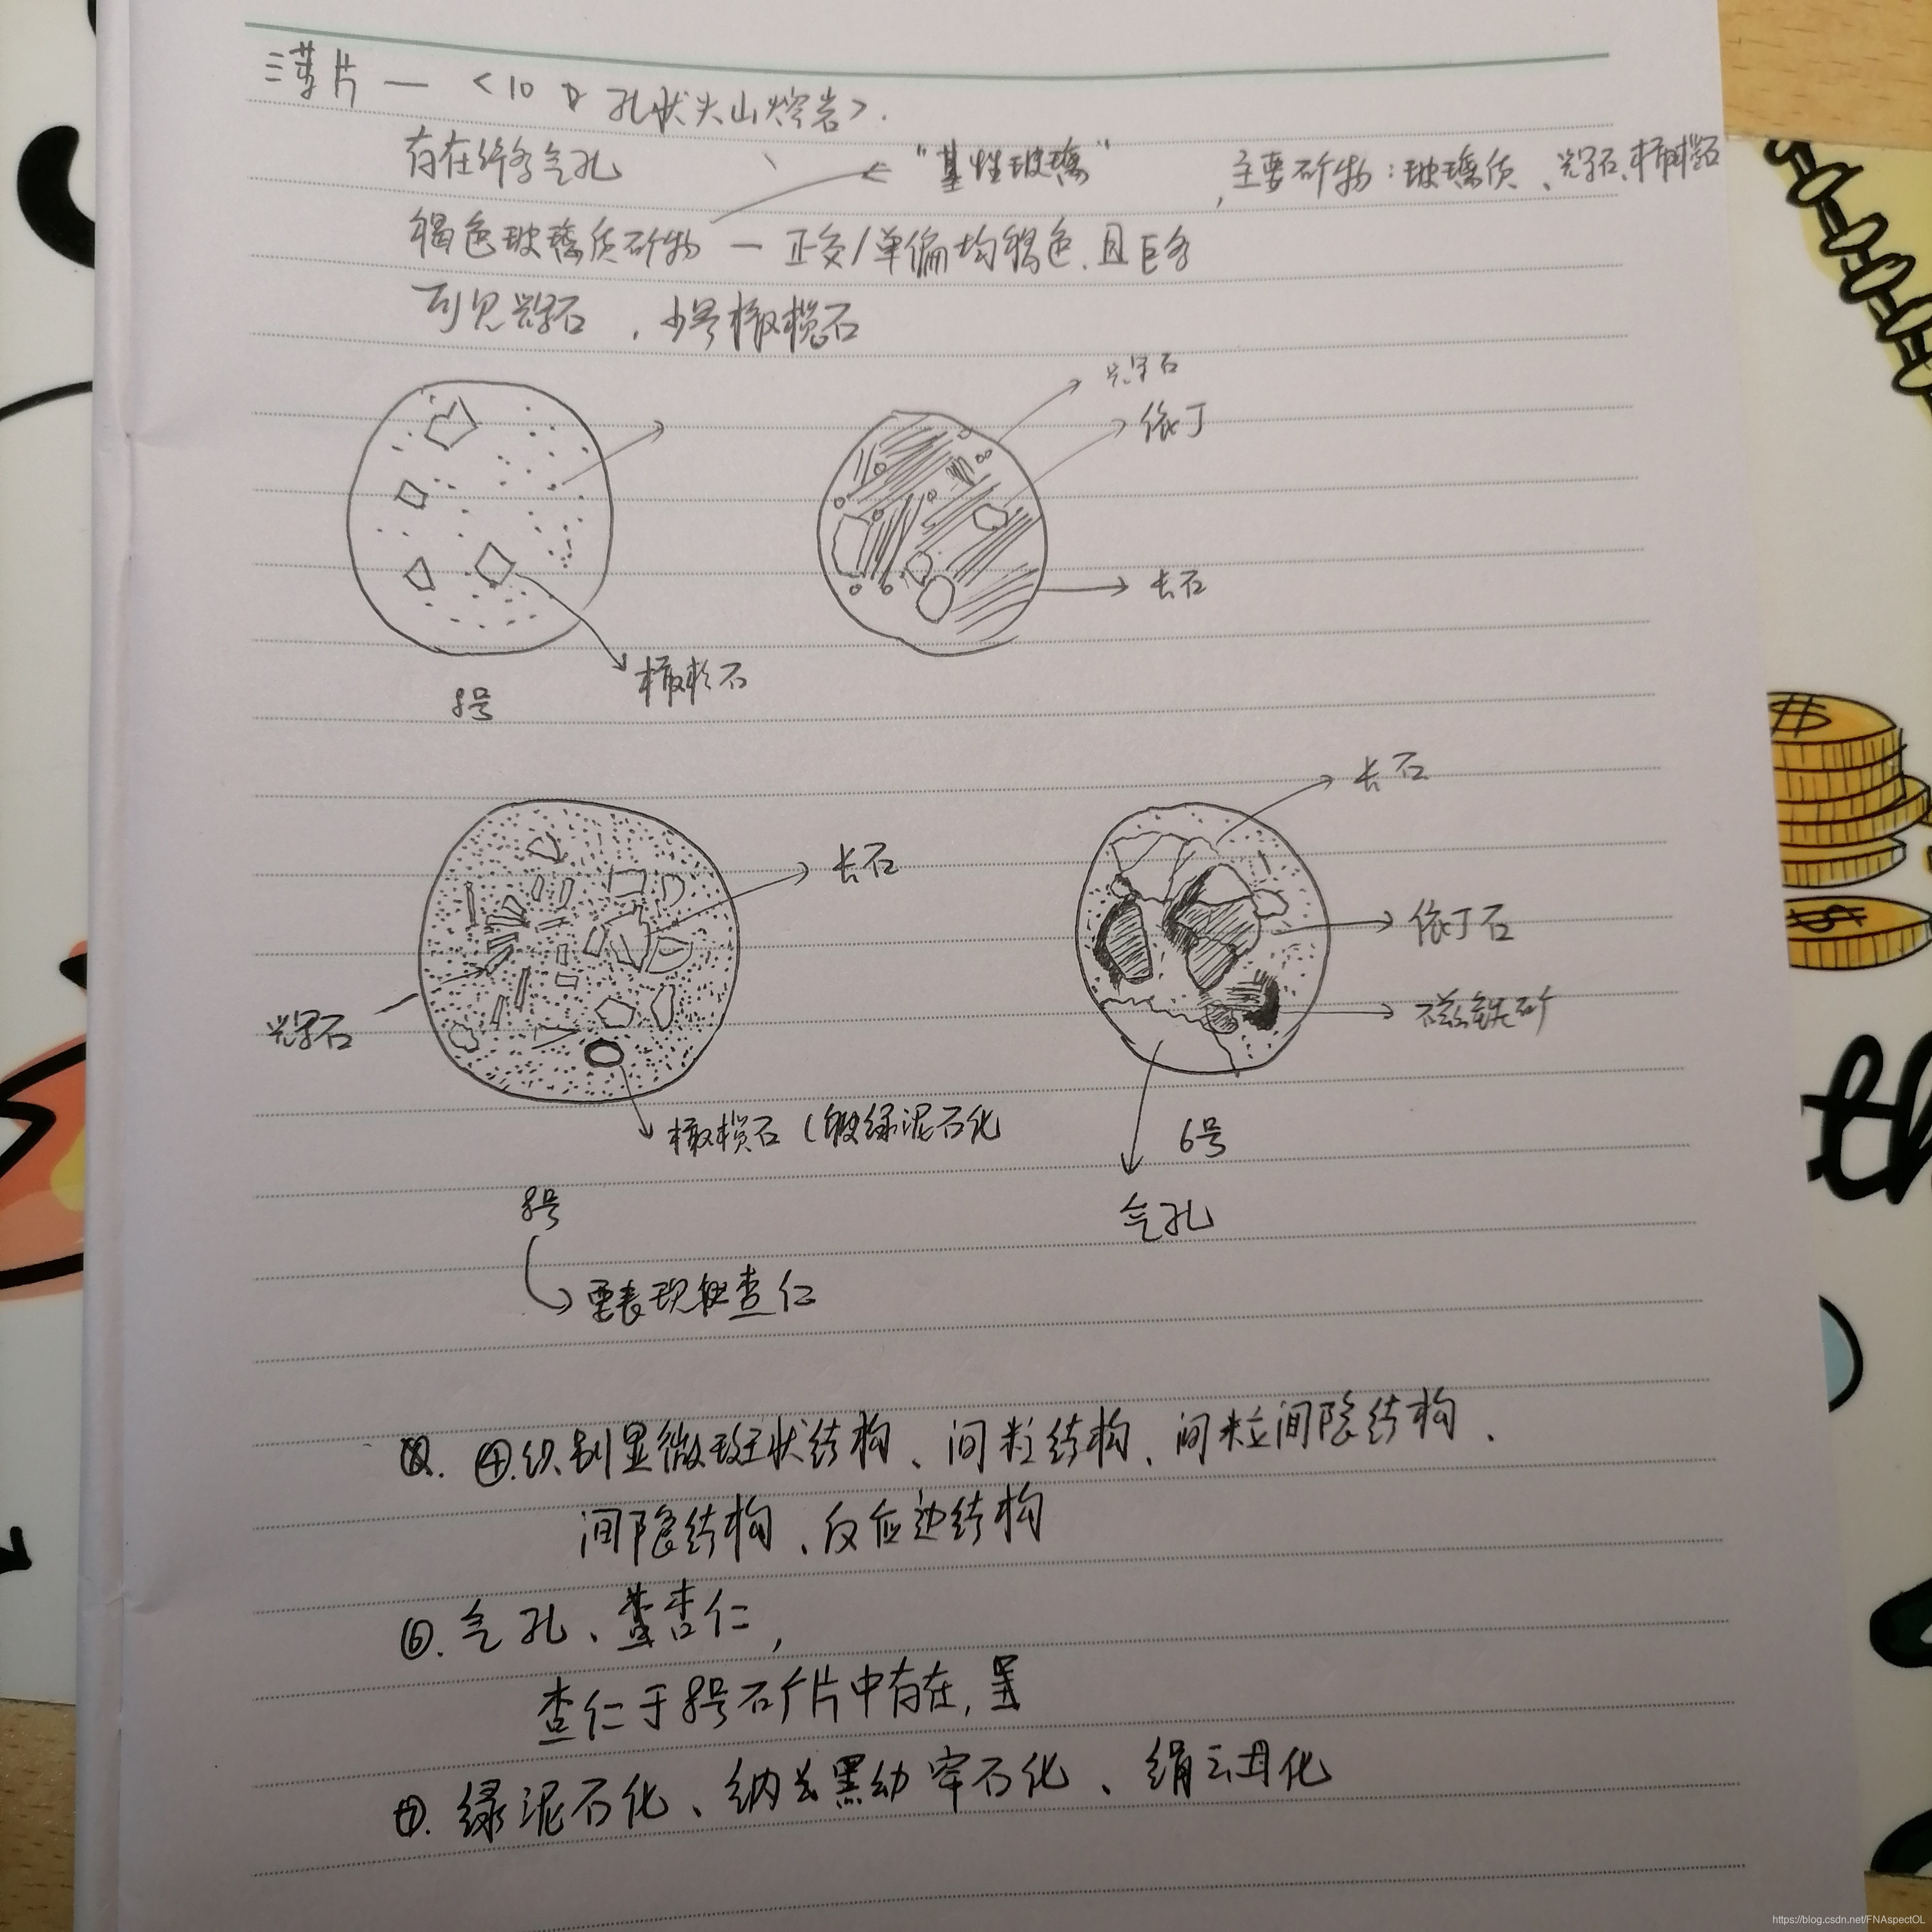 薄片 — <10 孔状火山熔岩>.
存在许多气孔
← "基性玻璃"
, 主要矿物:玻璃质、辉石、橄榄石
褐色玻璃质矿物 — 正交/单偏均褐色,且巨多
可见辉石 , 少量橄榄石
辉石
依丁
长石
橄榄石
8号
长石
长石
依丁石
辉石
磁铁矿
橄榄石(被绿泥石化
6号
8号
气孔
要表现杏仁
④.识别显微斑状结构、间粒结构、间粒间隐结构、
间隐结构、反应边结构
⑥.气孔、杏仁,
杏仁于8号石片中存在,呈
⑦.绿泥石化、纳长黝帘石化、绢云母化
th
$
$
https://blog.csdn.net/FNAspectOL